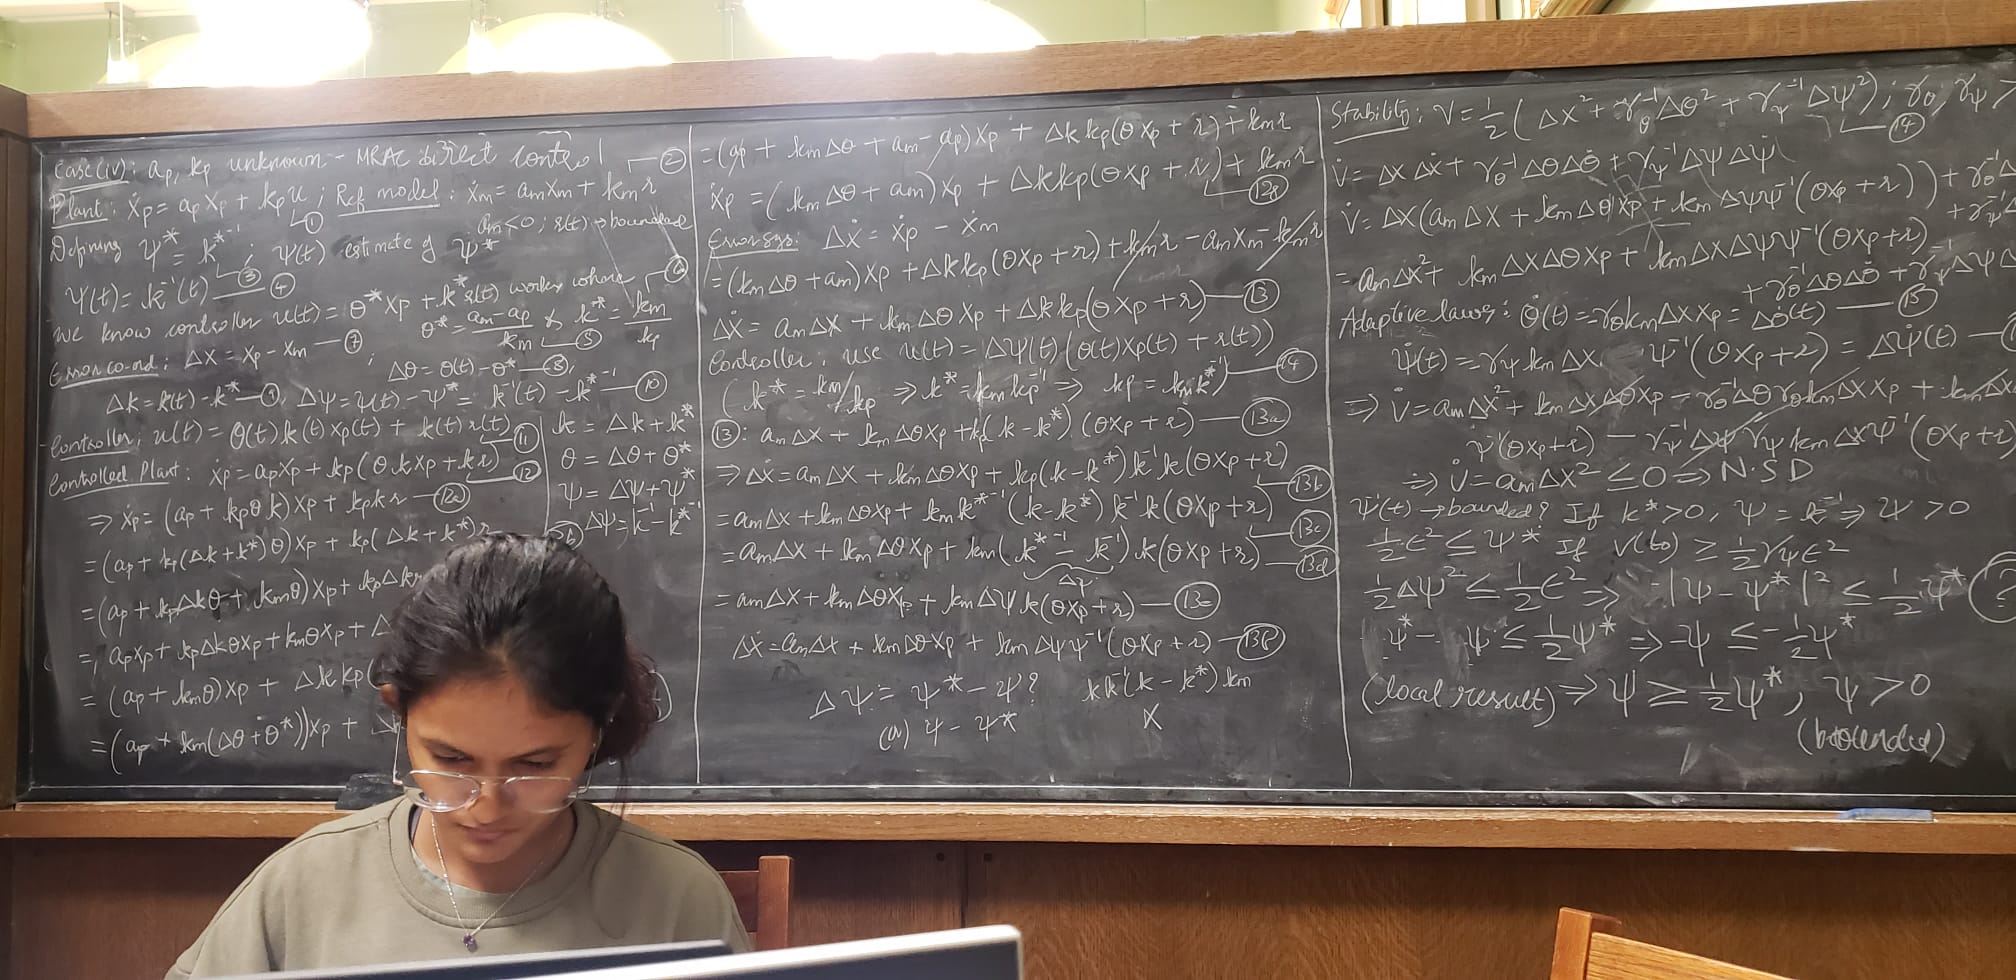 Case (iv): ap, kp unknown - MRAC direct control
Plant: ẋp = ap xp + kp u ①; Ref model: ẋm = am xm + km r — ②
am < 0; r(t) → bounded
Defining ψ* = k*⁻¹ ③; ψ(t) estimate of ψ*
ψ(t) = k⁻¹(t) — ④
We know controller u(t) = θ* xp + k* r(t) works where
θ* = (am - ap)/km ⑤ & k* = km/kp — ⑥
Error co-ord: Δx = xp - xm — ⑦; Δθ = θ(t) - θ* — ⑧,
Δk = k(t) - k* — ⑨, Δψ = ψ(t) - ψ* = k⁻¹(t) - k*⁻¹ — ⑩
Controller: u(t) = θ(t) k(t) xp(t) + k(t) r(t) ⑪
Controlled Plant: ẋp = ap xp + kp(θ k xp + k r) — ⑫
⇒ ẋp = (ap + kp θ k) xp + kp k r — (12a)
= (ap + kp(Δk + k*)θ) xp + kp(Δk + k*) r
= (ap + kp Δk θ + km θ) xp + kp Δk r
= ap xp + kp Δk θ xp + km θ xp + Δ
= (ap + km θ) xp + Δk kp (
= (ap + km(Δθ + θ*)) xp +
k = Δk + k*
θ = Δθ + θ*
ψ = Δψ + ψ*
Δψ = k⁻¹ - k*⁻¹
= (ap + km Δθ + am - ap) xp + Δk kp(θ xp + r) + km r
ẋp = (km Δθ + am) xp + Δk kp(θ xp + r) + km r
(12g)
Error sys: Δẋ = ẋp - ẋm
= (km Δθ + am) xp + Δk kp(θ xp + r) + km r - am xm - km r
Δẋ = am Δx + km Δθ xp + Δk kp(θ xp + r) — ⑬
Controller: use u(t) = Δψ(t) (θ(t) xp(t) + r(t))
(k* = km/kp ⇒ k* = km kp⁻¹ ⇒ kp = km k*⁻¹) — ⑭
⑬: am Δx + km Δθ xp + kp(k - k*) (θ xp + r) — (13a)
⇒ Δẋ = am Δx + km Δθ xp + kp(k - k*) k⁻¹ k (θ xp + r) — (13b)
= am Δx + km Δθ xp + km k*⁻¹ (k - k*) k⁻¹ k (θ xp + r) — (13c)
= am Δx + km Δθ xp + km (k*⁻¹ - k⁻¹) k (θ xp + r) — (13d)
Δψ
= am Δx + km Δθ xp + km Δψ k (θ xp + r) — (13e)
Δẋ = am Δx + km Δθ xp + km Δψ ψ⁻¹ (θ xp + r) — (13f)
Δψ = ψ* - ψ? k k⁻¹ (k - k*) km
(or) ψ - ψ* X
Stability: V = ½ (Δx² + γθ⁻¹ Δθ² + γψ⁻¹ Δψ²); γθ, γψ >
⑭
V̇ = Δx Δẋ + γθ⁻¹ Δθ Δθ̇ + γψ⁻¹ Δψ Δψ̇
V̇ = Δx (am Δx + km Δθ xp + km Δψ ψ⁻¹ (θ xp + r)) + γθ⁻¹ Δ
+ γψ⁻¹
= am Δx² + km Δx Δθ xp + km Δx Δψ ψ⁻¹ (θ xp + r)
+ γθ⁻¹ Δθ Δθ̇ + γψ⁻¹ Δψ Δ
Adaptive laws: θ̇(t) = -γθ km Δx xp = Δθ̇(t) — ⑮
ψ̇(t) = -γψ km Δx ψ⁻¹ (θ xp + r) = Δψ̇(t) —
⇒ V̇ = am Δx² + km Δx Δθ xp - γθ⁻¹ Δθ γθ km Δx xp + km Δx
ψ⁻¹ (θ xp + r) - γψ⁻¹ Δψ γψ km Δx ψ⁻¹ (θ xp + r)
⇒ V̇ = am Δx² ≤ 0 ⇒ N.S.D
ψ⁻¹(t) → bounded? If k* > 0, ψ = k⁻¹ ⇒ ψ > 0
½ ϵ² ≤ ψ* If V(t₀) ≥ ½ γψ ϵ²
½ Δψ² ≤ ½ ϵ² ⇒ |ψ - ψ*|² ≤ ½ ψ* ?
ψ* - ψ ≤ ½ ψ* ⇒ -ψ ≤ -½ ψ*
(local result) ⇒ ψ ≥ ½ ψ*, ψ > 0
(bounded)